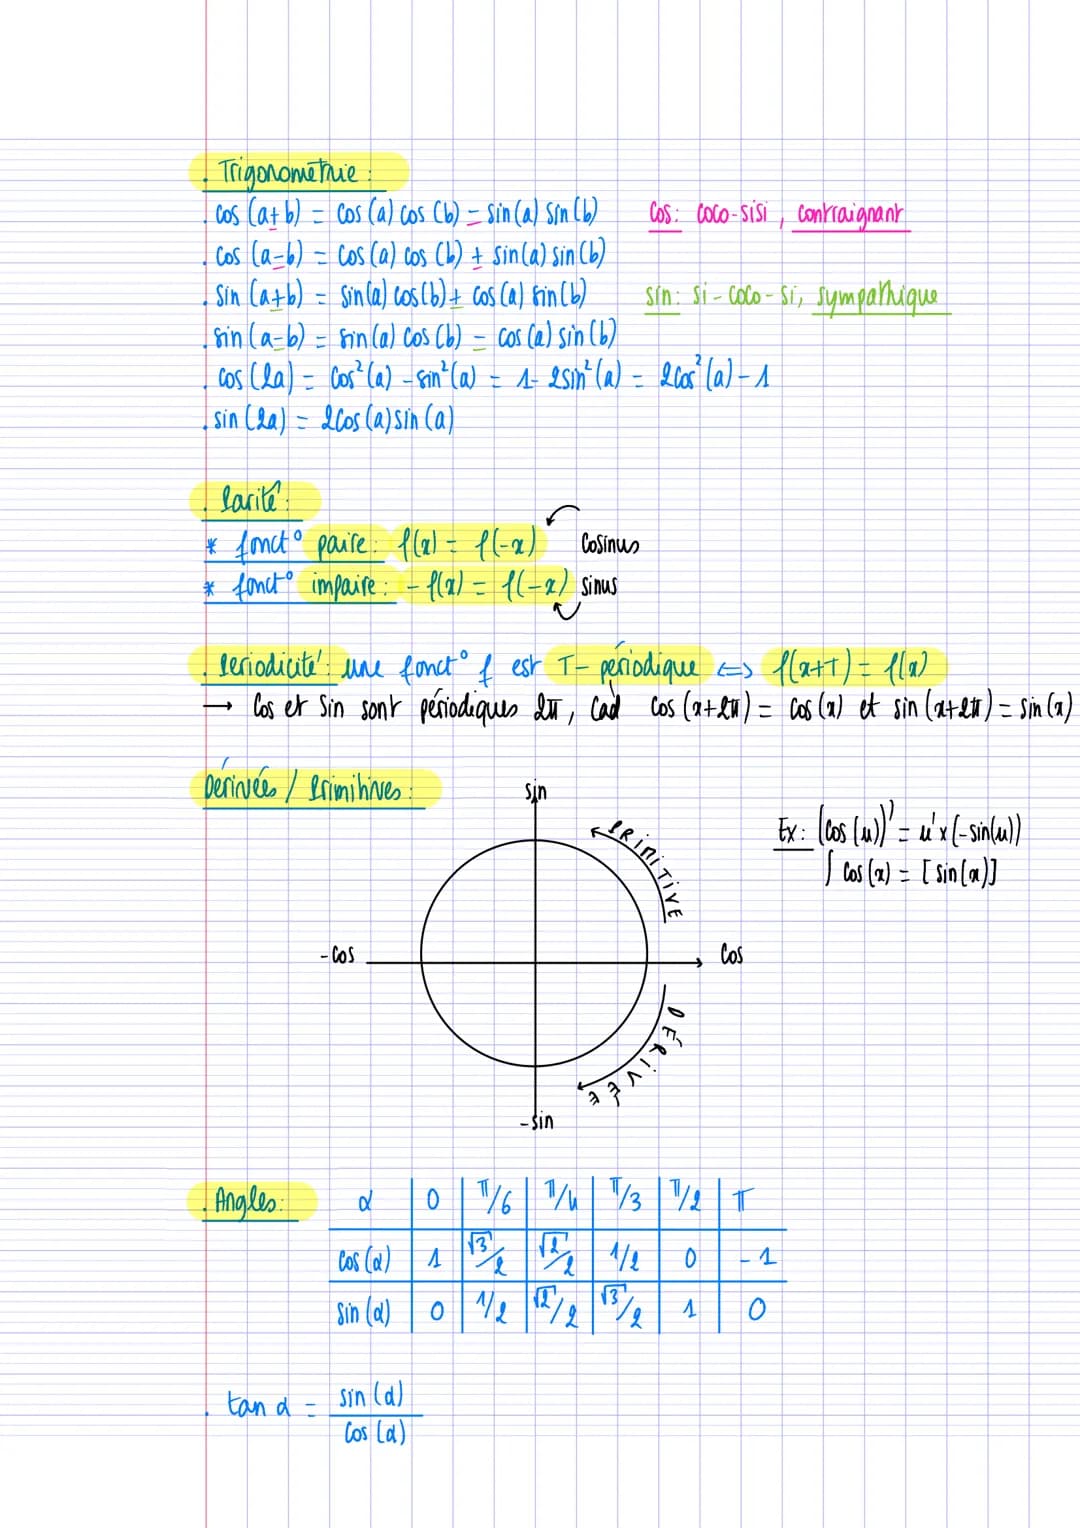 . Trigonométrie :
. cos (a+b) = cos (a) cos (b) - sin(a) sin(b) cos: coco-sisi, contraignant
. cos (a-b) = cos (a) cos (b) + sin(a) sin(b)
. sin (a+b) = sin(a) cos(b) + cos(a) sin(b) sin: si-coco-si, sympathique
. sin (a-b) = sin(a) cos (b) - cos (a) sin(b)
. cos (2a) = cos²(a) - sin²(a) = 1 - 2sin²(a) = 2cos²(a) - 1
. sin (2a) = 2cos(a)sin(a)
. Parité :
* fonct° paire : f(x) = f(-x) Cosinus
* fonct° impaire : - f(x) = f(-x) sinus
. Périodicité : une fonct° f est T- périodique <=> f(x+T) = f(x)
→ Cos et Sin sont périodiques 2π, càd cos (x+2π) = cos (x) et sin (x+2π) = sin(x)
Dérivées / Primitives :
sin
PRIMITIVE
Ex : (cos (u))' = u' x (-sin(u))
∫ cos (x) = [sin(x)]
- cos
cos
DÉRIVÉE
- sin
. Angles : α 0 π/6 π/4 π/3 π/2 π
cos (α) 1 √3/2 √2/2 1/2 0 -1
sin (α) 0 1/2 √2/2 √3/2 1 0
. tan α = sin (α)
cos (α)